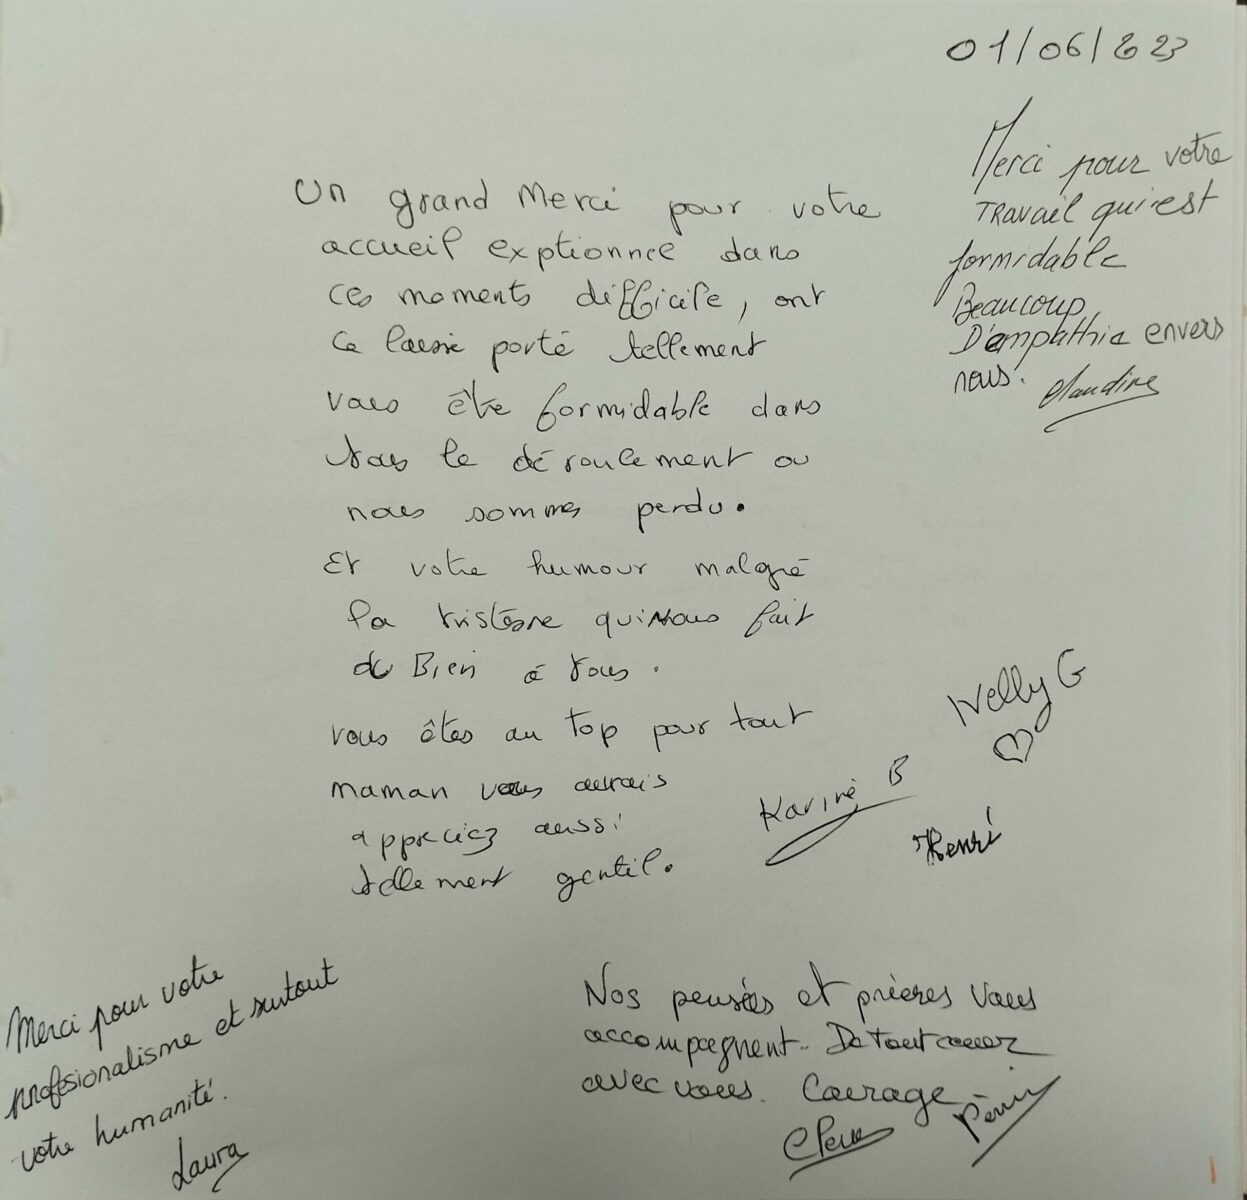 01/06/2023
Un grand Merci pour votre
accueil exptionnee dans
ces moments difficile, ont
ce laisse porté tellement
vous ête formidable dans
tous le déroulement ou
nous sommes perdu.
Et votre humour malgré
la tristesse qui nous fait
du Bien à tous.
vous êtes au top pour tout
maman vous aurais
appreciez aussi
tellement gentil.
Karine B
Nelly G
Henri
Merci pour votre
TRAvail qui est
formidable
Beaucoup
D'empathie envers
nous.
Claudine
Merci pour votre
profesionalisme et surtout
votre humanité.
Laura
Nos pensées et prières Vous
accompagnent.. De tout coeur
avec vous. Courage